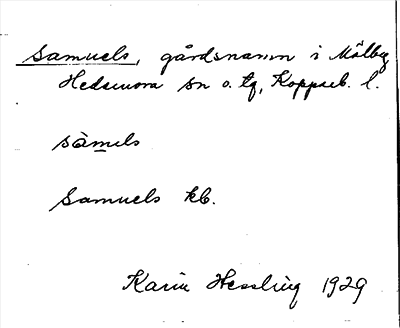 Samuels, gårdsnamn i Målby
Hedemora sn o. tg, Kopparb. l.
sàmels
Samuels kb.
Karin Hessling 1929